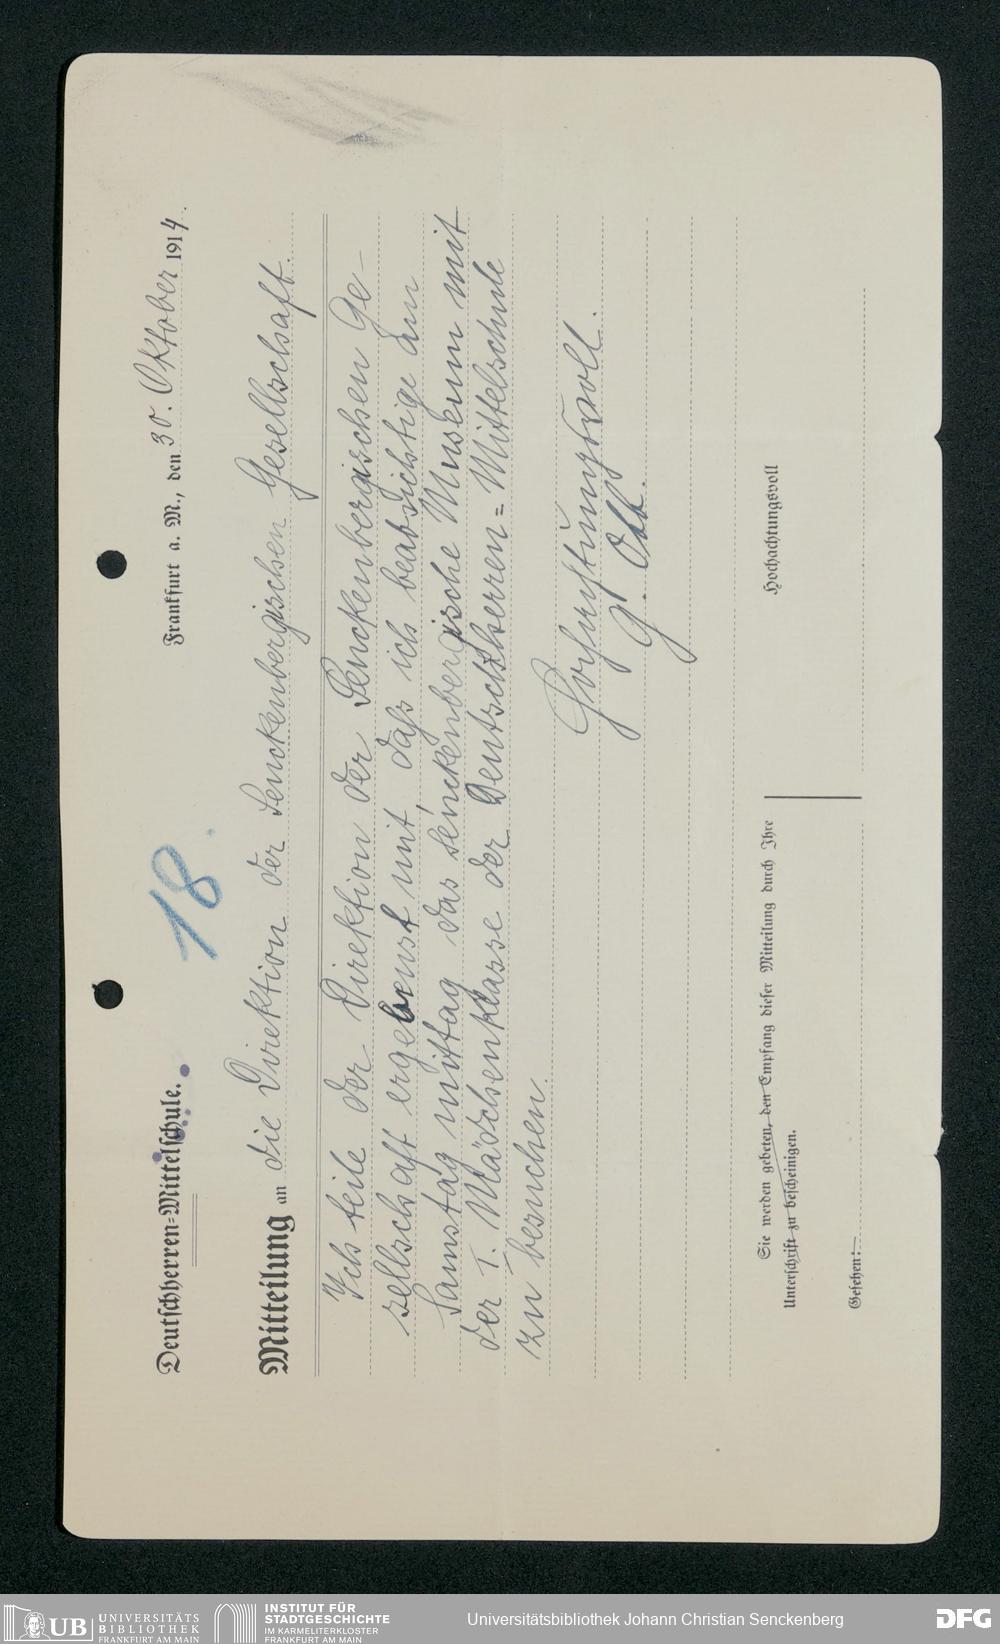 Deutschherren-Mittelschule.
18.
Frankfurt a. M., den 30. Oktober 1914.
Mitteilung an die Direktion der Senckenbergischen Gesellschaft.
Ich teile der Direktion der Senckenbergischen Ge-
sellschaft ergebenst mit, daß ich beabsichtige am
Samstag mittag das senckenbergische Museum mit
der I. Mädchenklasse der Deutschherren-Mittelschule
zu besuchen.
Hochachtungsvoll
G. Ott.
Sie werden gebeten, den Empfang dieser Mitteilung durch Ihre
Unterschrift zu bescheinigen.
Hochachtungsvoll
Gesehen:
UB UNIVERSITÄTS
BIBLIOTHEK
FRANKFURT AM MAIN
INSTITUT FÜR
STADTGESCHICHTE
IM KARMELITERKLOSTER
FRANKFURT AM MAIN
Universitätsbibliothek Johann Christian Senckenberg
DFG